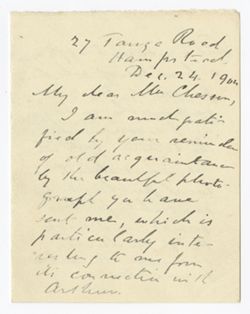 27 Tanza Road
Hampstead.
Dec. 24. 190
My dear Mrs Chesson,
I am much grati-
fied by your reminder
of old acquaintance
by the beautiful photo-
graph you have
sent me, which is
particularly inte-
resting to me from
its connection with
Arthur.